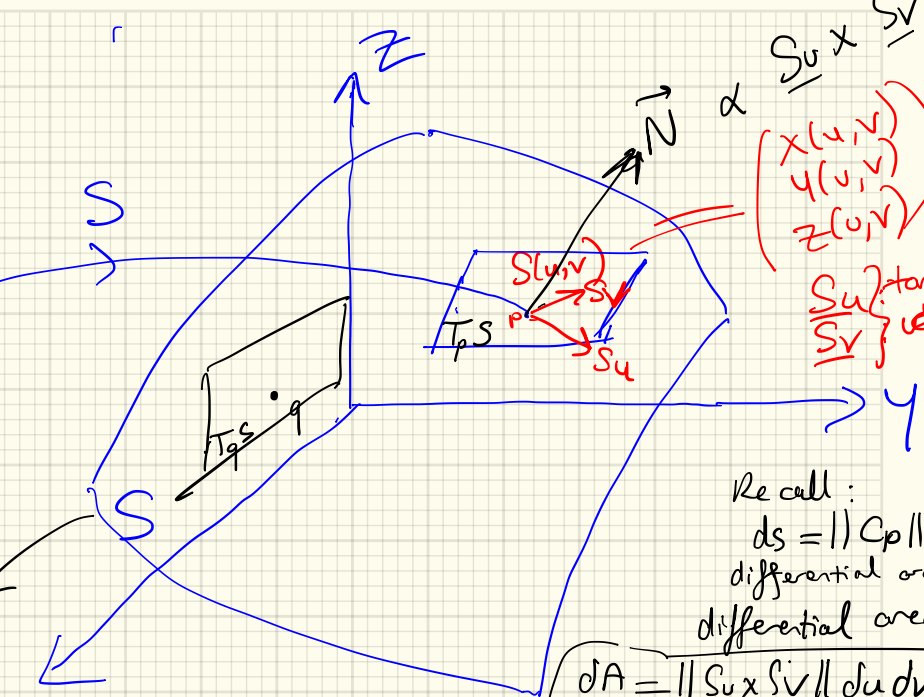 Z
N⃗ ∝ Su × Sv
S
x(u,v)
y(u,v)
z(u,v)
S(u,v)
Sv
P
TpS
Su
Su
Sv
Y
q
TqS
S
Recall:
ds = || Cp ||
differential
differential
dA = || Su x Sv || du dv